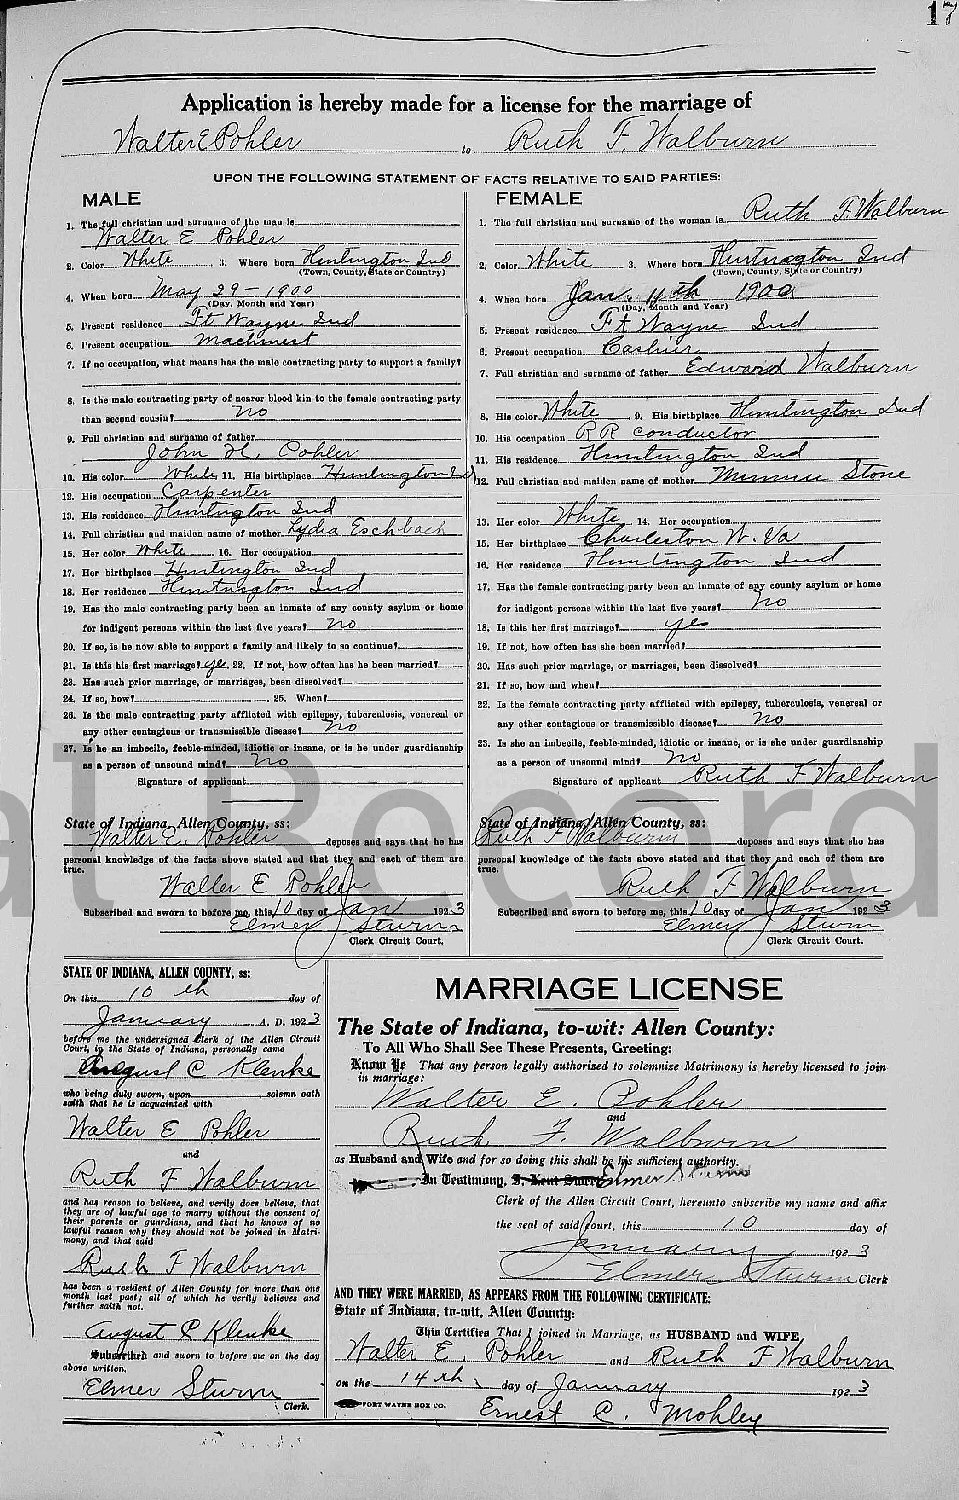 17
Application is hereby made for a license for the marriage of
Walter E Pohler to Ruth F. Walburn
UPON THE FOLLOWING STATEMENT OF FACTS RELATIVE TO SAID PARTIES:
MALE
1. The full christian and surname of the man is
Walter E Pohler
2. Color White 3. Where born Huntington Ind
(Town, County, State or Country)
4. When born May 29-1900
(Day, Month and Year)
5. Present residence Ft Wayne Ind
6. Present occupation Machinist
7. If no occupation, what means has the male contracting party to support a family?
8. Is the male contracting party of nearer blood kin to the female contracting party
than second cousin? no
9. Full christian and surname of father
John H. Pohler
10. His color White 11. His birthplace Huntington Ind
12. His occupation Carpenter
13. His residence Huntington Ind
14. Full christian and maiden name of mother Lydia Eschbach
15. Her color White 16. Her occupation
17. Her birthplace Huntington Ind
18. Her residence Huntington Ind
19. Has the male contracting party been an inmate of any county asylum or home
for indigent persons within the last five years? no
20. If so, is he now able to support a family and likely to so continue?
21. Is this his first marriage? yes 22. If not, how often has he been married?
23. Has such prior marriage, or marriages, been dissolved?
24. If so, how? 25. When?
26. Is the male contracting party afflicted with epilepsy, tuberculosis, venereal or
any other contagious or transmissible disease? no
27. Is he an imbecile, feeble-minded, idiotic or insane, or is he under guardianship
as a person of unsound mind? no
Signature of applicant
State of Indiana, Allen County, ss:
Walter E. Pohler deposes and says that he has
personal knowledge of the facts above stated and that they and each of them are
true.
Walter E Pohler
Subscribed and sworn to before me, this 10 day of Jan 1923
Elmer Sturm
Clerk Circuit Court.
FEMALE
1. The full christian and surname of the woman is Ruth F. Walburn
2. Color White 3. Where born Huntington Ind
(Town, County, State or Country)
4. When born Jan. 11th 1900
(Day, Month and Year)
5. Present residence Ft Wayne Ind
6. Present occupation Cashier
7. Full christian and surname of father Edward Walburn
8. His color White 9. His birthplace Huntington Ind
10. His occupation RR conductor
11. His residence Huntington Ind
12. Full christian and maiden name of mother Minnie Stone
13. Her color White 14. Her occupation
15. Her birthplace Charleston W. Va
16. Her residence Huntington Ind
17. Has the female contracting party been an inmate of any county asylum or home
for indigent persons within the last five years? no
18. Is this her first marriage? yes
19. If not, how often has she been married?
20. Has such prior marriage, or marriages, been dissolved?
21. If so, how and when?
22. Is the female contracting party afflicted with epilepsy, tuberculosis, venereal or
any other contagious or transmissible disease? no
23. Is she an imbecile, feeble-minded, idiotic or insane, or is she under guardianship
as a person of unsound mind? no
Signature of applicant Ruth F Walburn
State of Indiana, Allen County, ss:
Ruth F Walburn deposes and says that she has
personal knowledge of the facts above stated and that they and each of them are
true.
Ruth F Walburn
Subscribed and sworn to before me, this 10 day of Jan 1923
Elmer Sturm
Clerk Circuit Court.
al Record
STATE OF INDIANA, ALLEN COUNTY, ss:
On this 10th day of
January A. D. 1923
before me the undersigned Clerk of the Allen Circuit
Court, in the State of Indiana, personally came
August C Klenke
who being duly sworn, upon solemn oath
saith that he is acquainted with
Walter E Pohler
and
Ruth F Walburn
and has reason to believe, and verily does believe, that
they are of lawful age to marry without the consent of
their parents or guardians, and that he knows of no
lawful reason why they should not be joined in Matri-
mony, and that said
Ruth F Walburn
has been a resident of Allen County for more than one
month last past; all of which he verily believes and
further saith not.
August C Klenke
Subscribed and sworn to before me on the day
above written.
Elmer Sturm
Clerk.
MARRIAGE LICENSE
The State of Indiana, to-wit: Allen County:
To All Who Shall See These Presents, Greeting:
Know Ye That any person legally authorized to solemnize Matrimony is hereby licensed to join
in marriage:
Walter E. Pohler
and
Ruth F. Walburn
as Husband and Wife and for so doing this shall be his sufficient authority.
In Testimony, I, Elmer Sturm
Clerk of the Allen Circuit Court, hereunto subscribe my name and affix
the seal of said Court, this 10 day of
January 1923
Elmer Sturm Clerk
AND THEY WERE MARRIED, AS APPEARS FROM THE FOLLOWING CERTIFICATE:
State of Indiana, to-wit, Allen County:
This Certifies That I joined in Marriage, as HUSBAND and WIFE
Walter E. Pohler and Ruth F Walburn
on the 14th day of January 1923
FORT WAYNE BOX CO. Ernest C. Mohley